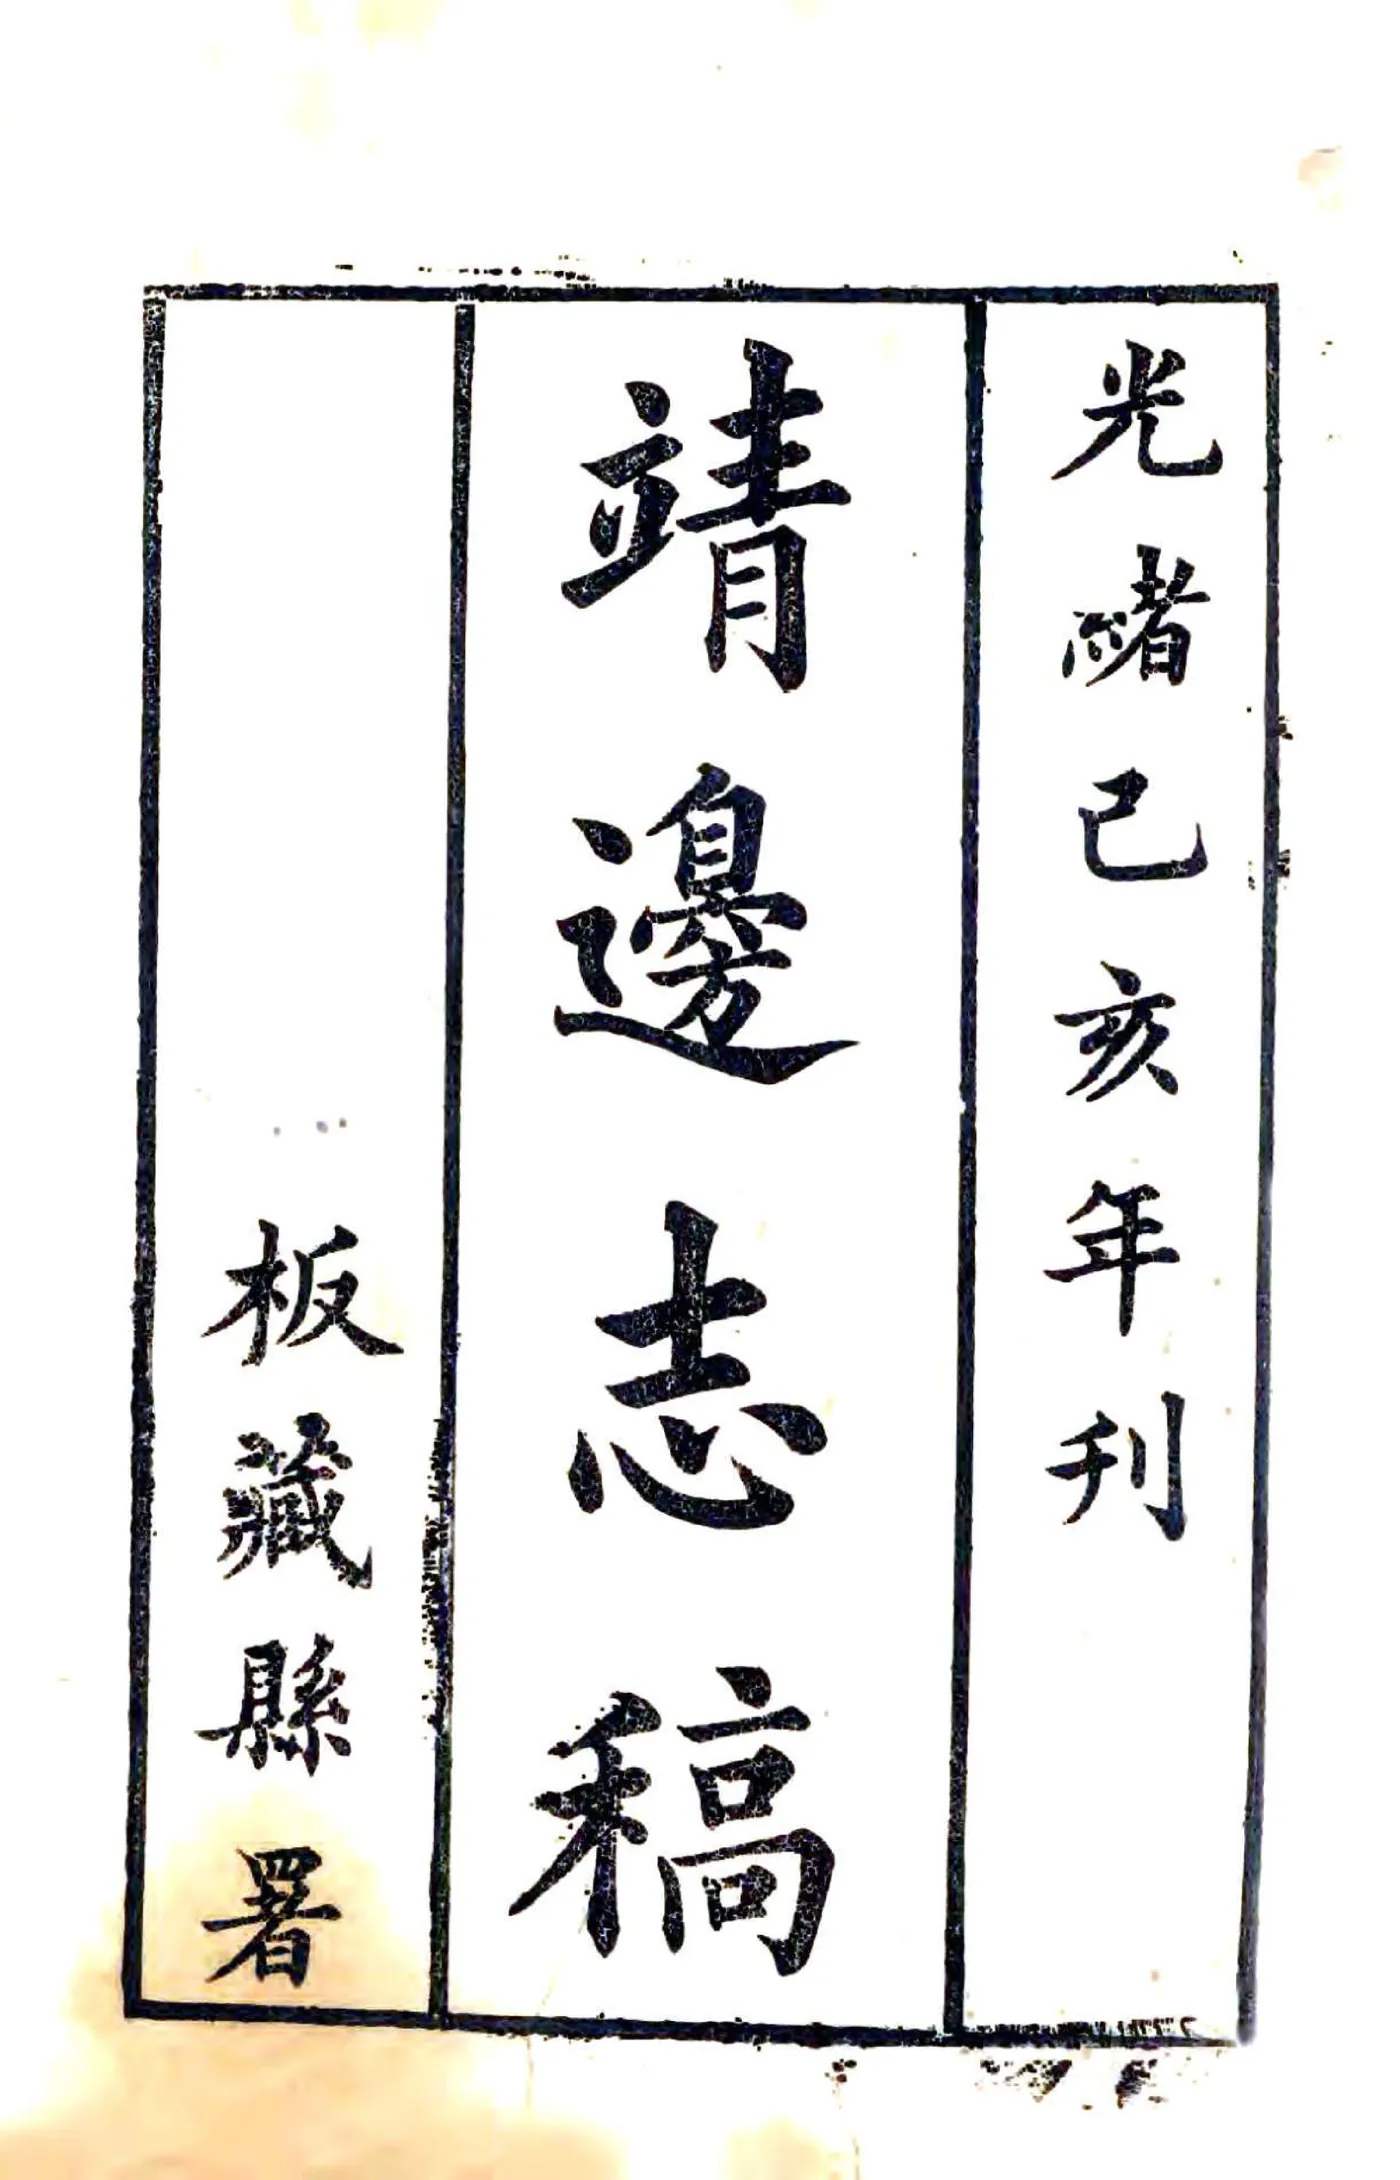 光緒己亥年刋
靖邊志稿
板藏縣署